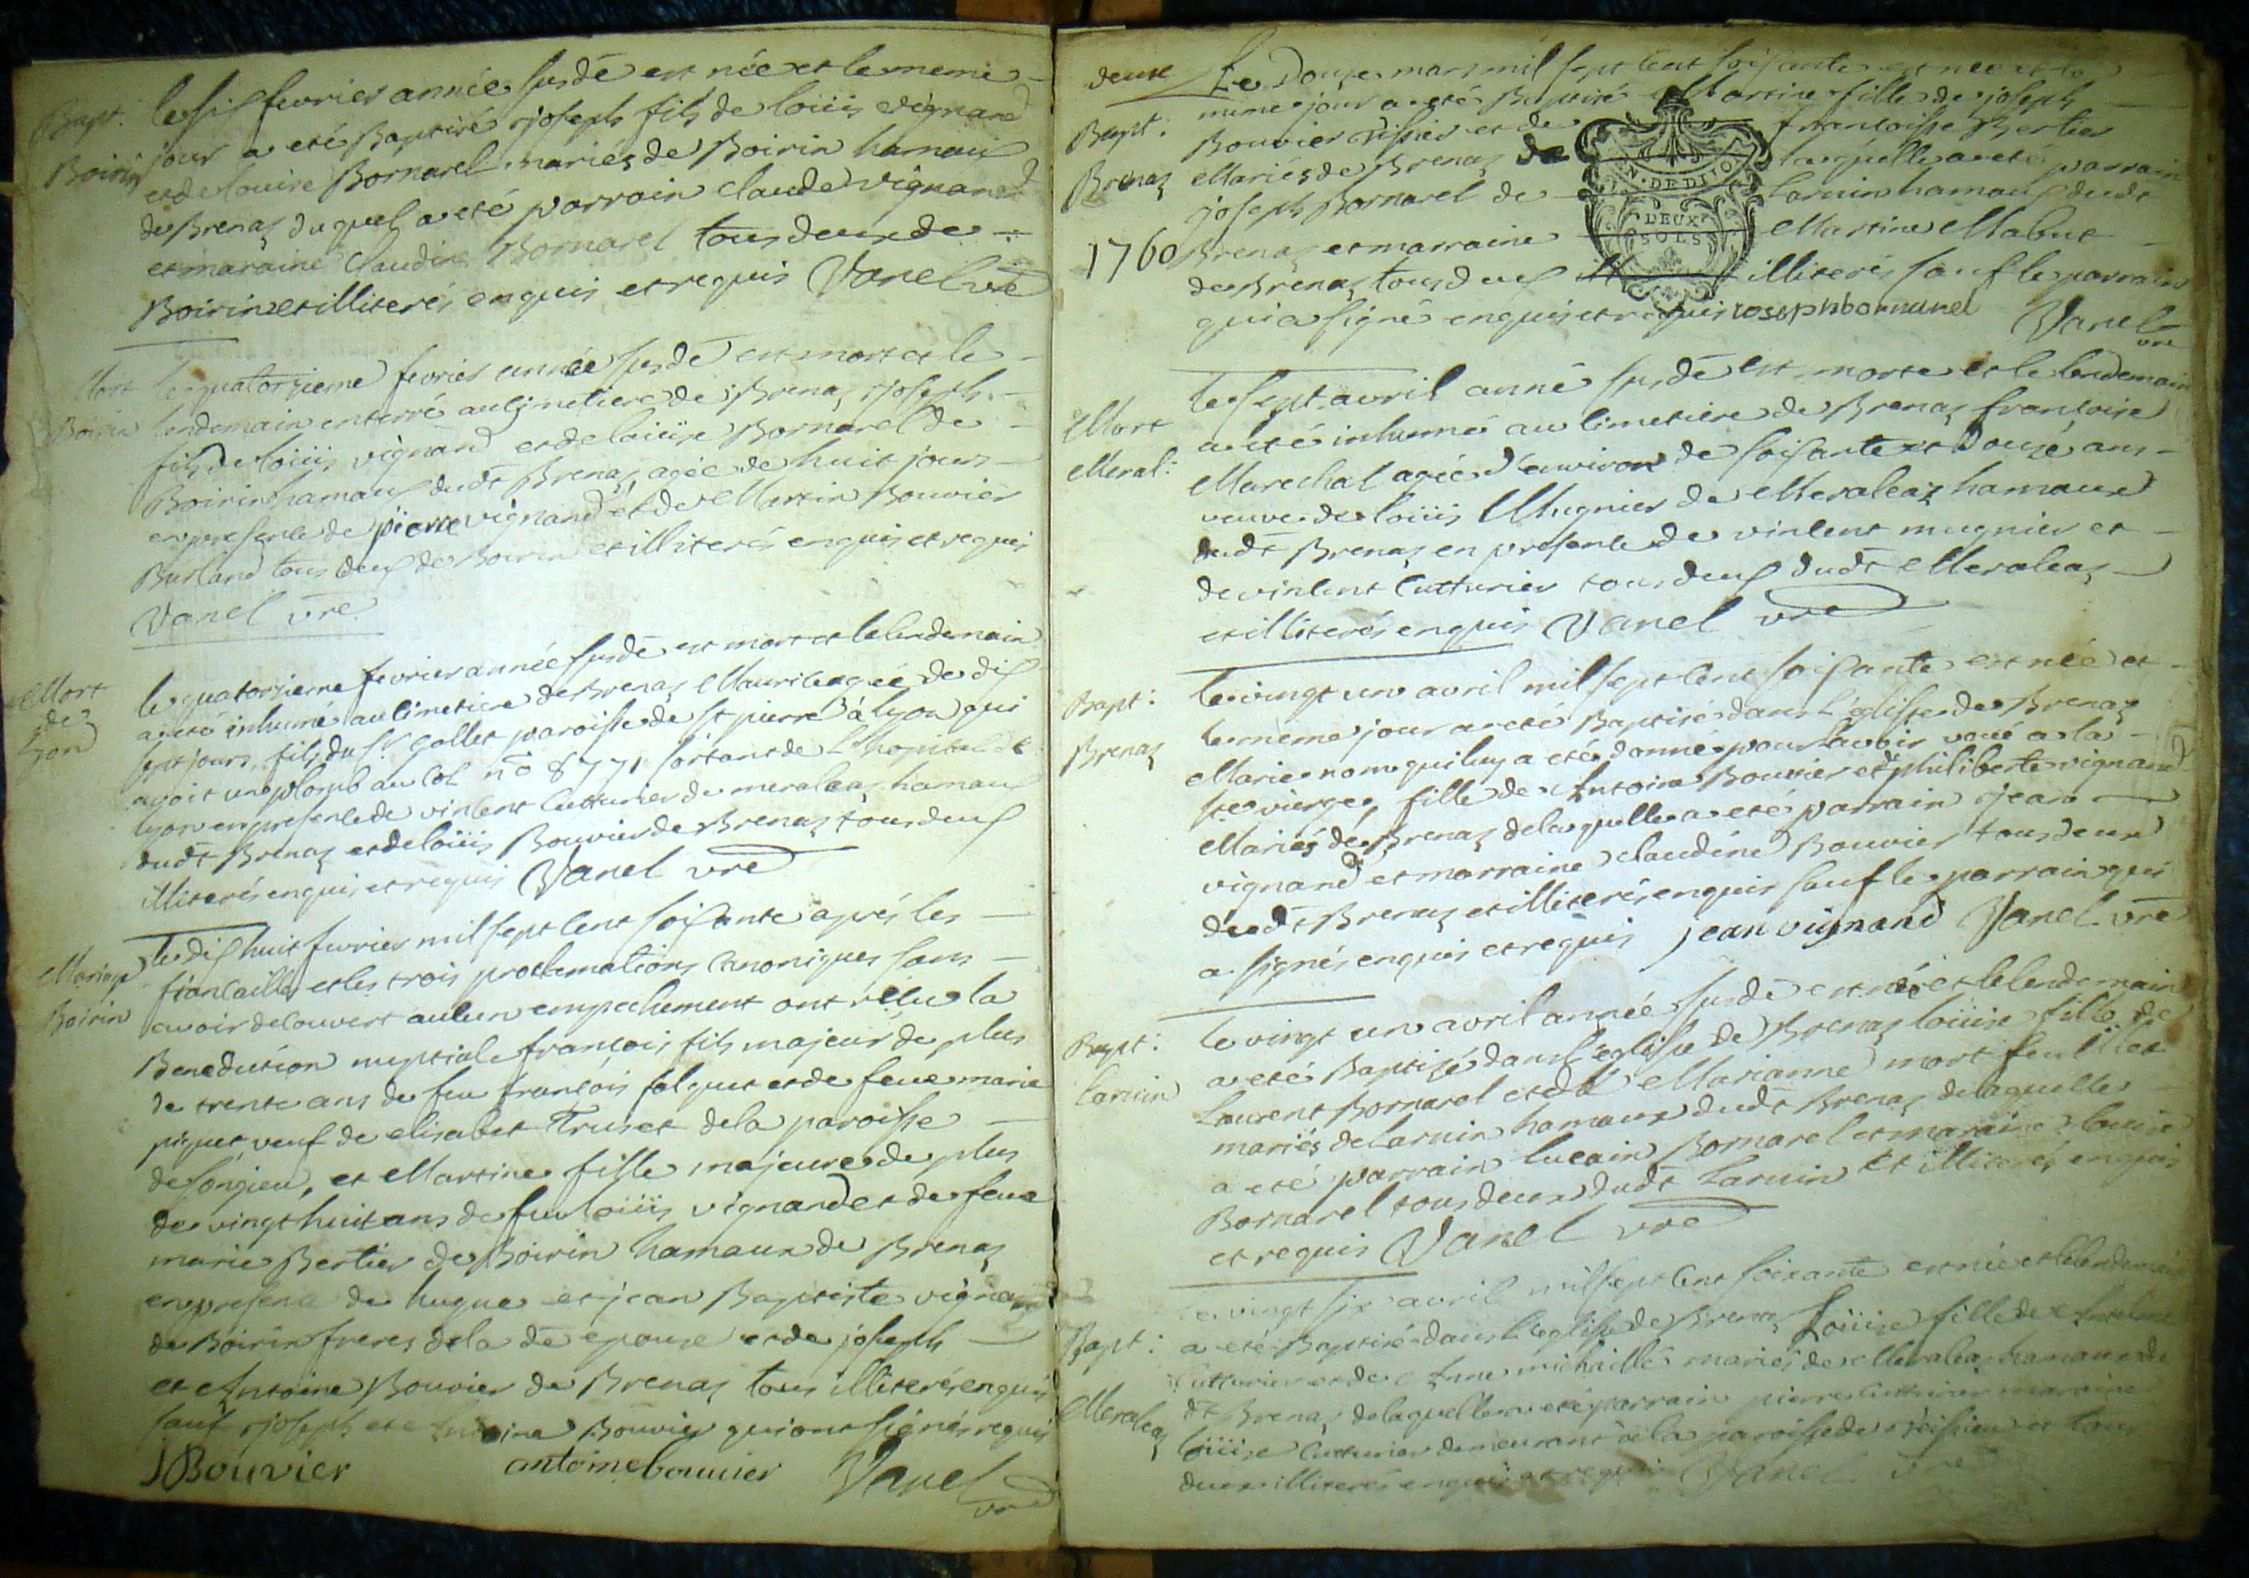 Bapt: le six fevrier année susdé est née et le meme
Boirin jour a eté Baptisé joseph fils de loüis vignand
et de louise Bornarel mariés de Boirin hamaux
de Brenaz duquel a eté parrain Claude vignand
et maraine Claudine Bornarel tous deux de
Boirin et illiterés enquis et requis Vanel vre
Mort le quatorzieme fevrier année susdé est mort et le
Boirin lendemain enterré au cimetiere de Brenaz joseph
fils de loüis vignand et de loüise Bornarel de
Boirin hamaux dudt Brenaz, agée de huit jours
en presence de pierre vignand et de Martin Bouvier
Burland tous deux de Boirin et illiterés enquis et requis
Vanel vre
Mort le quatorzieme fevrier année susdé est mort et le lendemain
de a eté inhumé au cimetiere de Brenaz Maurice agée de dix
Lyon sept jours, fils du Sr. Collet paroisse de st pierre à Lyon qui
avoit un plomb au col no 8771 sortant de L'hopital de
lyon en presence de vincent Cutturier de meraleaz hamaux
dudt Brenaz et de loüis Bouvier de Brenaz tous deux
illiterés enquis et requis Vanel vre
Mariage le dix huit fevrier mil sept cent soixante après les
Boirin fiancailles et les trois proclamations Canoniques sans
avoir decouvert aucun empechement ont recu la
Benediction nuptiale françois fils majeur de plus
de trente ans de feu françois falquet et de feue marie
piquet, veuf de elisabet Truset de la paroisse
de songieu, et Martine fille majeure de plus
de vingt huit ans de feu loüis vignand et de feue
marie Bertier de Boirin hamaux de Brenaz
en presence de hugue et jean Baptiste vignand
de Boirin freres de la de epouse et de joseph
et Antoine Bouvier de Brenaz tous illiterés enquis
sauf joseph et Antoine Bouvier qui ont signés requis
JBouvier antoinebouvier Vanel
vre
deuxe Le Douze mars mil sept cent soixante est née et le
Bapt: meme jour a eté Baptisée Martine fille de joseph
Bouvier et de francoise Bertier
Brenaz Mariés de Brenaz de laquelle a eté parrain
joseph Bornarel de Larmin hamaux dudt
1760 Brenaz et marraine Martine Mabut
de Brenaz tous deux illiterés sauf le parrain
qui a signé enquis et requis iosephbornarel Vanel
vre
GEN. DE DIJON
DEUX
SOLS
Mort le sept avril anné susdé est morte et le lendemain
Meral: a eté inhumé au cimetiere de Brenaz françoise
Marechal agée d'environ de soixante et Douze ans
veuve de loüis Mugnier de Meraleaz hamaux
dudt Brenaz en presence de vincent mugnier et
de vincent Cutturier tous deux dudt Meraleaz
et illiterés enquis Vanel vre
Bapt: le vingt un avril mil sept cent soixante est née et
Brenaz le même jour a eté Baptisé dans L'eglise de Brenaz
Marie nom qui luy a eté donné pour l'avoir voué a la
ste vierge, fille de Antoine Bouvier et de philiberte vignand
Mariés de Brenaz de laquelle a eté parrain jean
vignand et marraine claudine Bouvier tous deux
dudt Brenaz et illiterés enquis sauf le parrain qui
a signés enquis et requis jean vignand Vanel vre
Bapt: le vingt un avril année susdé est née et le lendemain
Larmin a eté Baptizé dans l'eglise de Brenaz loüise fille de
Laurent Bornarel et de Marianne
mariés de Larmin hamaux dudt Brenaz de laquelle
a eté parrain Lucain Bornarel et maraine louise
Bornarel tous deux dudt Larmin et illiterés enquis
et requis Vanel vre
Bapt: le vingt six avril mil sept cent soixante est née et le lendemain
Meraleaz a eté Baptisé dans l'eglise de Brenaz Loüise fille de Antelme
Cutturier et de Anne michaille mariés de Meraleaz hamaux de
dt Brenaz de laquelle a eté parrain pierre Cutturier maraine
loüise Cutturier demeurant à la paroisse de et tous
deux illiterés enquis et requis Vanel vre